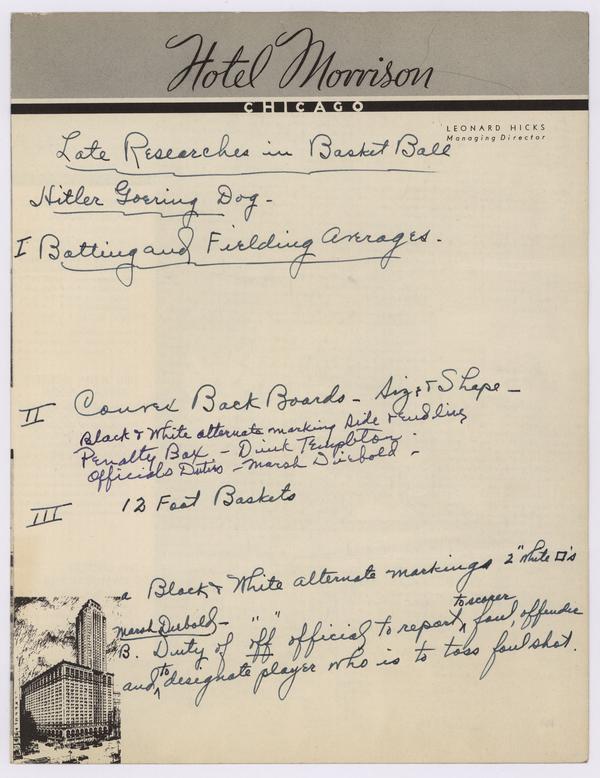 Hotel Morrison
CHICAGO
LEONARD HICKS
Managing Director
Late Researches in Basket Ball
Hitler Goering Dog -
I Batting and Fielding Averages.
II Convex Back Boards - Size & Shape -
Black & White alternate marking Side & endline
Penalty Box - Dink Templeton -
Officials Duties - Marsh Diebold -
III 12 Foot Baskets
a Black & White alternate markings 2" white □'s
Marsh Diebold -
B. Duty of "off" official to report to scorer foul, offender
and to designate player who is to toss foul shot.